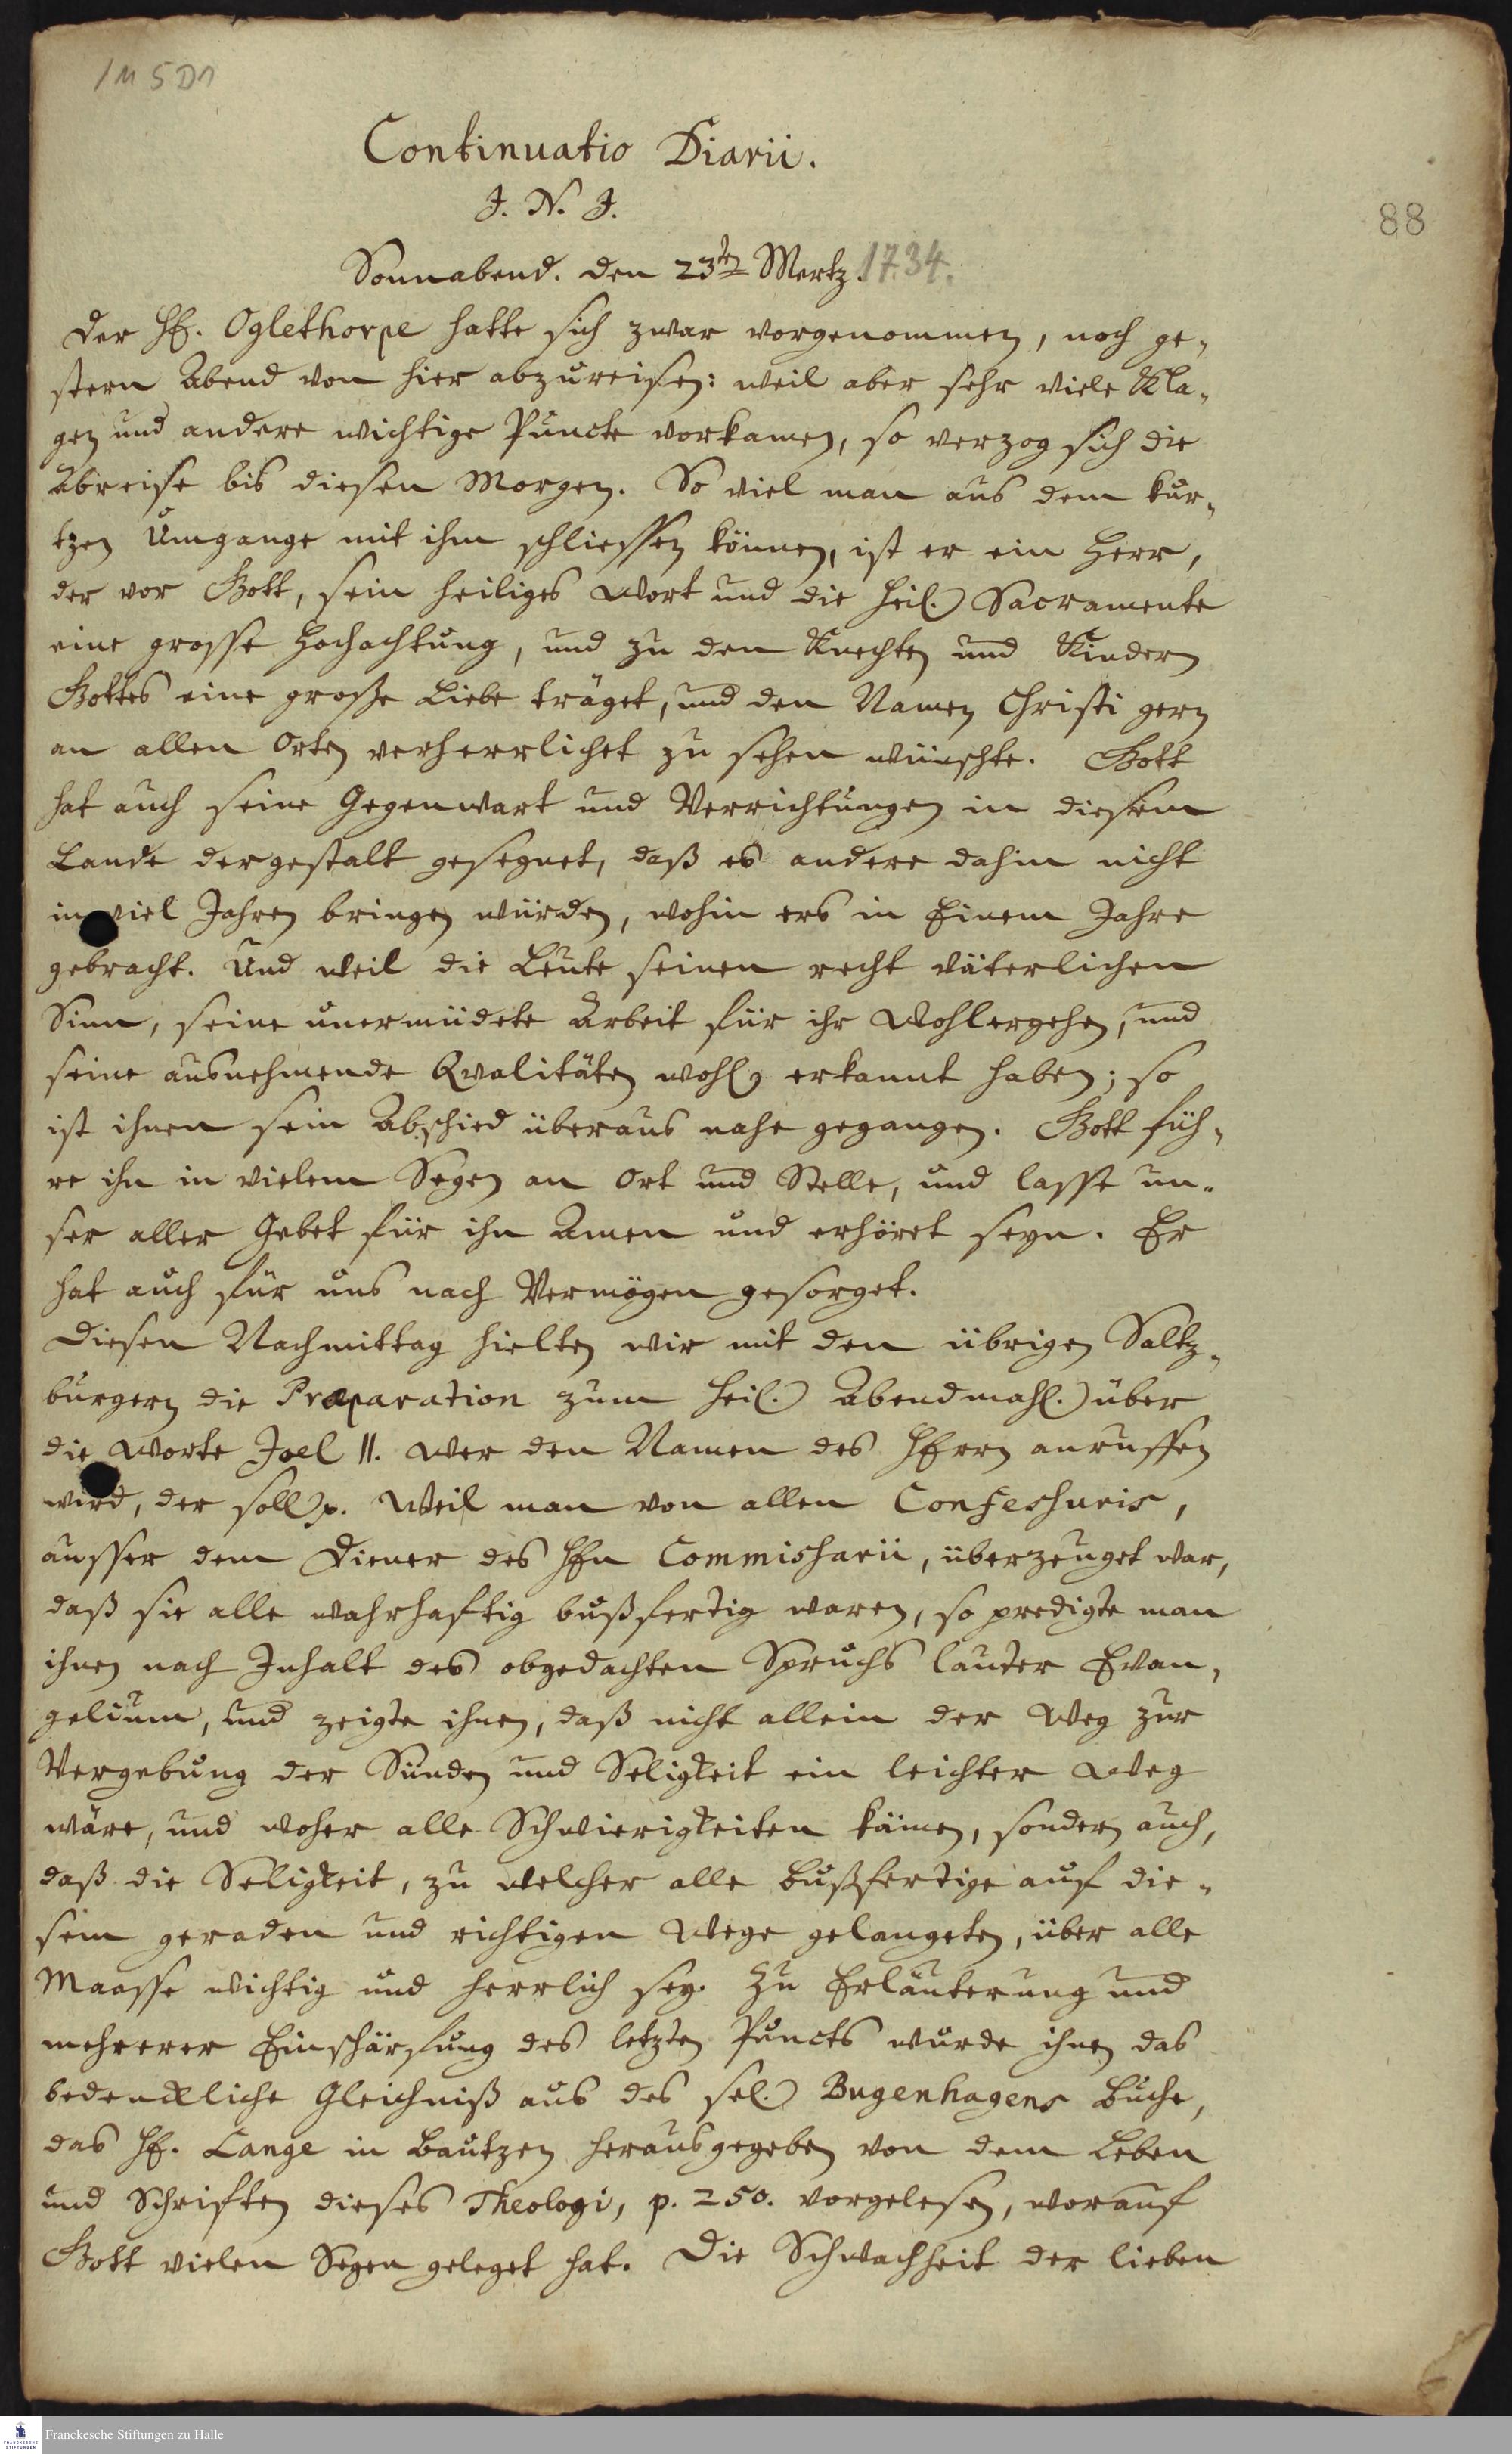 1M 5 D1
Continuatio Diarii.
J. N. J.
88
Sonnabend. den 23ten Mertz. 1734.
Der HE. Oglethorpe hatte sich zwar vorgenommen, noch ge-
stern Abend von hier abzureisen: weil aber sehr viele Kla-
gen und andere wichtige Puncte vorkamen, so verzog sich die
Abreise bis diesen Morgen. So viel man aus dem kur-
tzen Umgange mit ihm schliessen können, ist er ein Herr,
der vor Gott, sein heiliges Wort und die heil. Sacramente
eine grosse Hochachtung, und zu den Knechten und Kindern
Gottes eine große Liebe träget, und den Namen Christi gern
an allen Orten verherrlichet zu sehen wünschte. Gott
hat auch seine Gegenwart und Verrichtungen in diesem
Lande dergestalt gesegnet, daß es andere dahin nicht
in viel Jahren bringen würden, wohin ers in Einem Jahre
gebracht. Und weil die Leute seinen recht väterlichen
Sinn, seine unermüdete Arbeit für ihr Wohlergehen, und
seine ausnehmende Qvalitäten wohl erkannt haben; so
ist ihnen sein Abschied überaus nahe gegangen. Gott füh-
re ihn in vielem Segen an Ort und Stelle, und lasse un-
ser aller Gebet für ihn Amen und erhöret seyn. Er
hat auch für uns nach Vermögen gesorget.
Diesen Nachmittag hielten wir mit den übrigen Saltz-
burgern die Præparation zum heil. Abendmahl. über
die Worte Joel II. Wer den Namen des HErrn anruffen
wird, der soll p. Weil man von allen Confessuris,
ausser dem Diener des HEn Commissarii, überzeuget war,
daß sie alle wahrhaftig bußfertig waren, so predigte man
ihnen nach Inhalt des obgedachten Spruchs lauter Evan-
gelium, und zeigte ihnen, daß nicht allein der Weg zur
Vergebung der Sünden und Seligkeit ein leichter Weg
wäre, und woher alle Schwierigkeiten kämen, sondern auch,
daß die Seligkeit, zu welcher alle Bußfertige auf die-
sem geraden und richtigen Wege gelangeten, über alle
Maasse wichtig und herrlich sey. Zu Erläuterung und
mehrerer Einschärfung des letzten Puncts wurde ihnen das
bedenckliche Gleichniß aus des sel. Bugenhagens Buche,
das HE. Lange in Bautzen herausgegeben von dem Leben
und Schriften dieses Theologi, p. 250. vorgelesen, worauf
Gott vielen Segen geleget hat. Die Schwachheit der lieben
Franckesche Stiftungen zu Halle